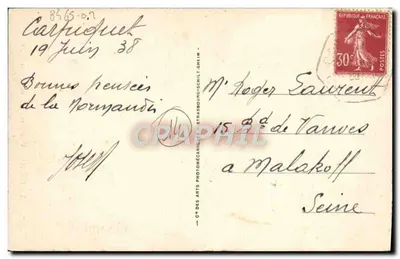 8465-D.2
Carpiquet
19 Juin 38
Bonnes pensées
de la Normandie
14
Cie DES ARTS PHOTOMÉCANIQUES STRASBOURG-SCHILTIGHEIM
RÉPUBLIQUE FRANÇAISE
30c
POSTES
Mr Roger Laurent
15 Bd de Vanves
a Malakoff
Seine
CPARPHIL.COM